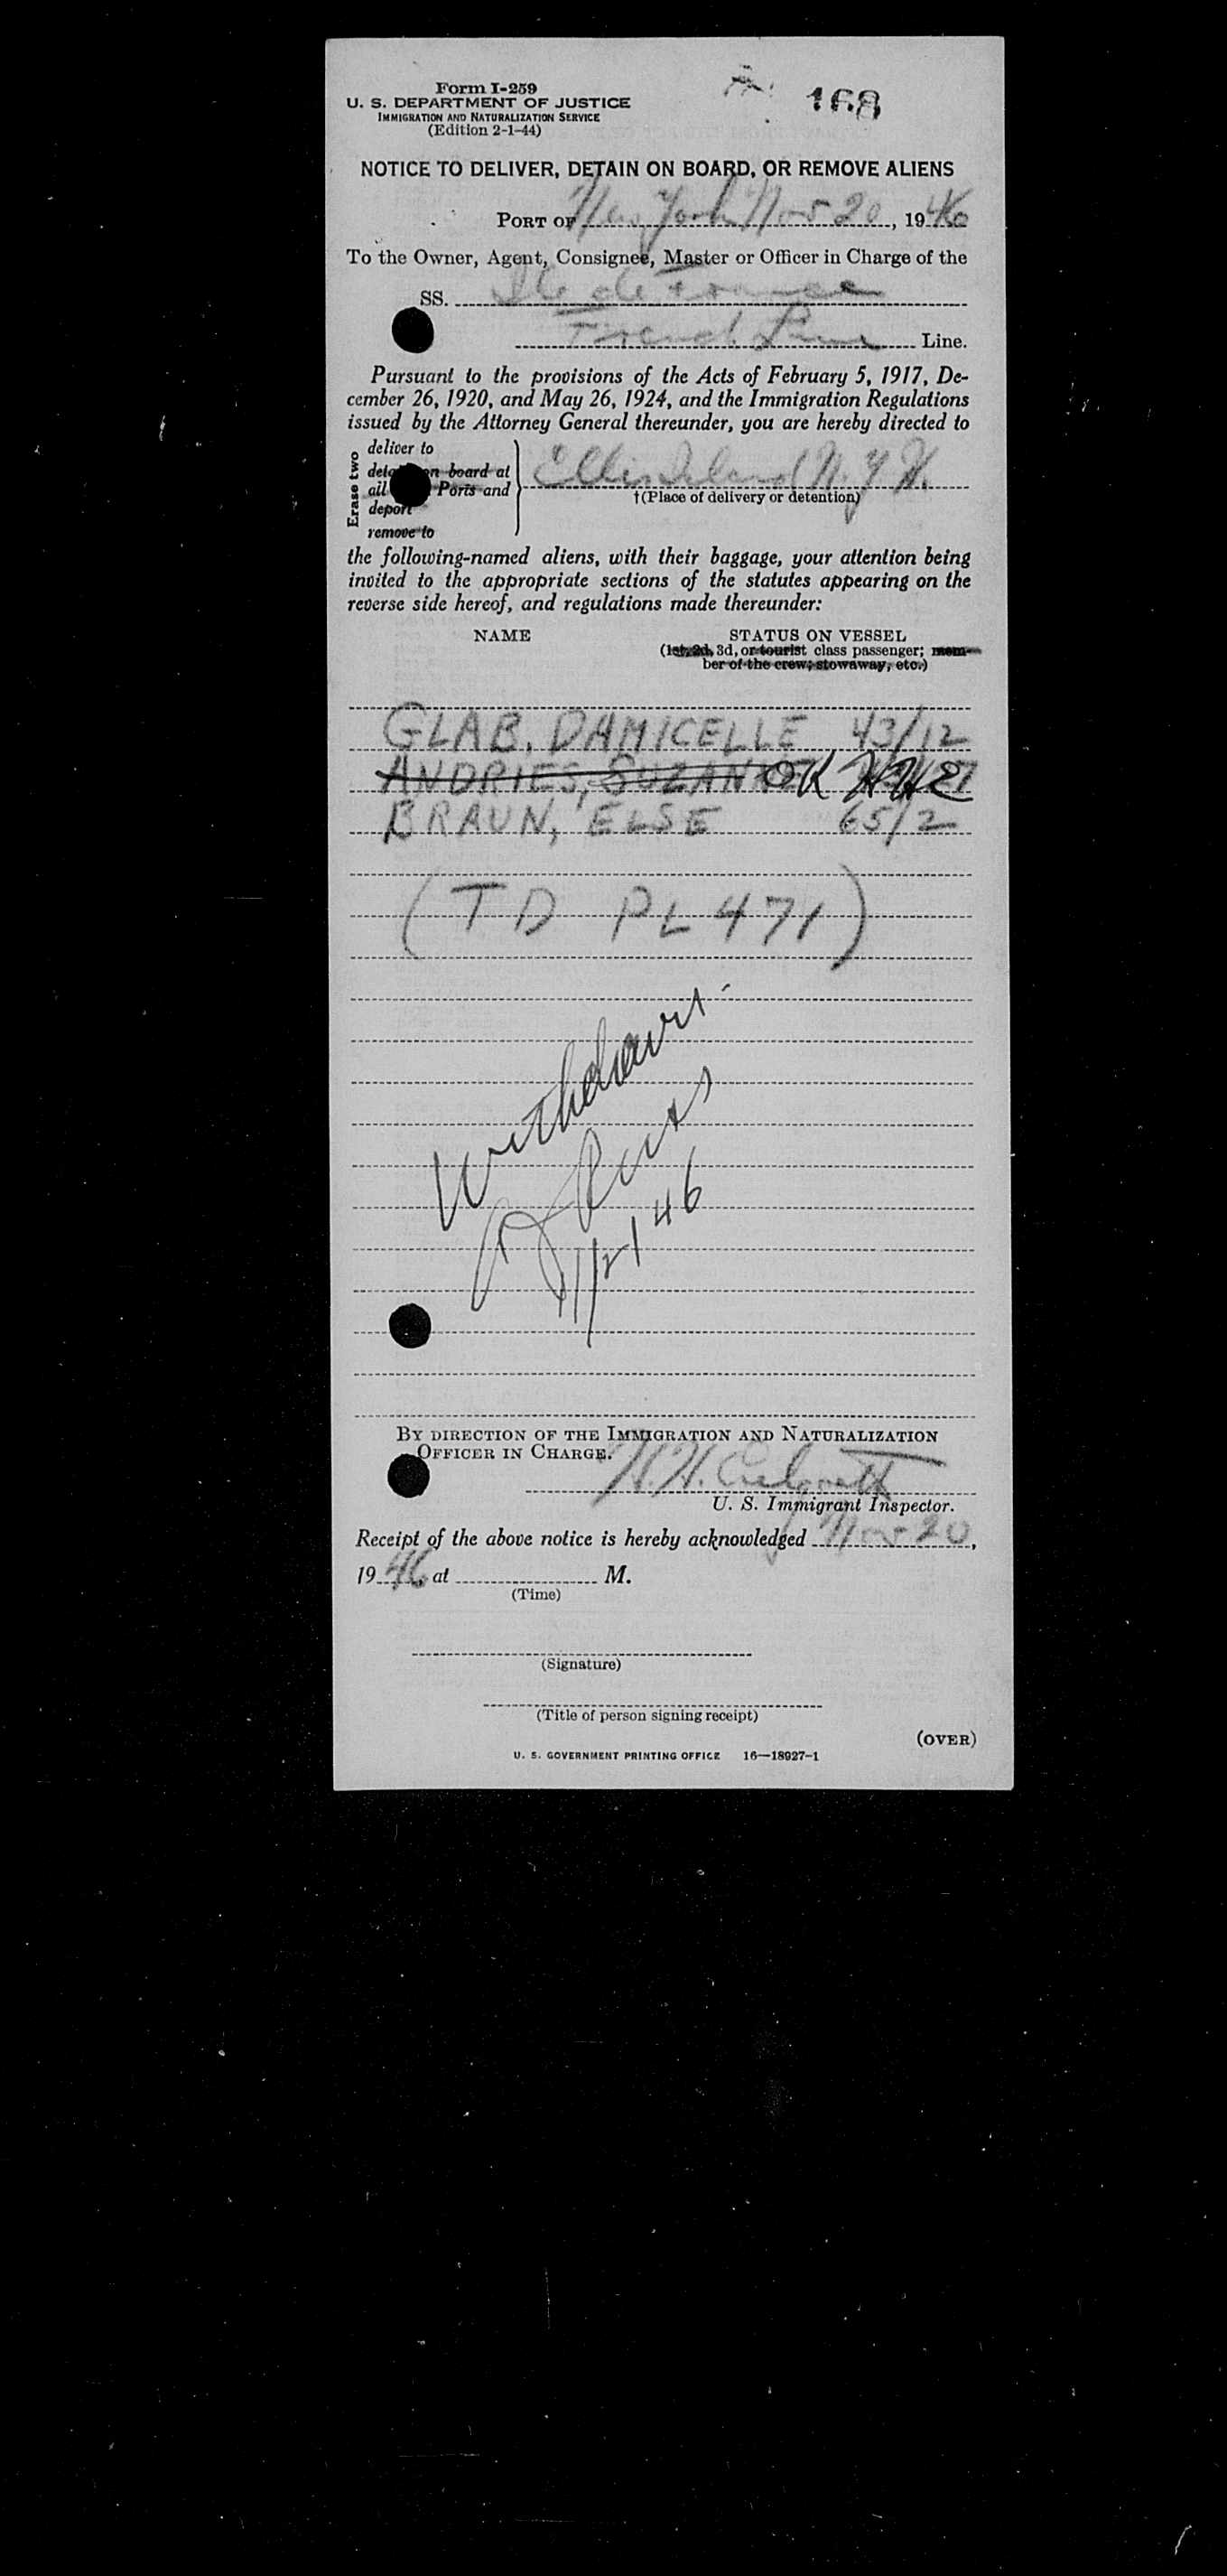 Form I-259
168
U. S. DEPARTMENT OF JUSTICE
IMMIGRATION AND NATURALIZATION SERVICE
(Edition 2-1-44)
NOTICE TO DELIVER, DETAIN ON BOARD, OR REMOVE ALIENS
PORT OF New York Nov 20, 1946
To the Owner, Agent, Consignee, Master or Officer in Charge of the
SS. Ile de France
French Line Line.
Pursuant to the provisions of the Acts of February 5, 1917, De-
cember 26, 1920, and May 26, 1924, and the Immigration Regulations
issued by the Attorney General thereunder, you are hereby directed to
Erase two
deliver to
on board at
all Ports and
deport
remove to
Ellis Island N. Y. H.
†(Place of delivery or detention)
the following-named aliens, with their baggage, your attention being
invited to the appropriate sections of the statutes appearing on the
reverse side hereof, and regulations made thereunder:
NAME STATUS ON VESSEL
(1st, 2d, 3d, or tourist class passenger; mem-
ber of the crew; stowaway, etc.)
GLAB, DAMICELLE 43/12
ANDRIES, SUZANNE OK HHE
BRAUN, ELSE 65/2
(TD PL 471)
Withdrawn
11/21/46
BY DIRECTION OF THE IMMIGRATION AND NATURALIZATION
OFFICER IN CHARGE.
H. H.
U. S. Immigrant Inspector.
Receipt of the above notice is hereby acknowledged Nov 20,
1946, at M.
(Time)
(Signature)
(Title of person signing receipt)
(OVER)
U. S. GOVERNMENT PRINTING OFFICE 16—18927-1